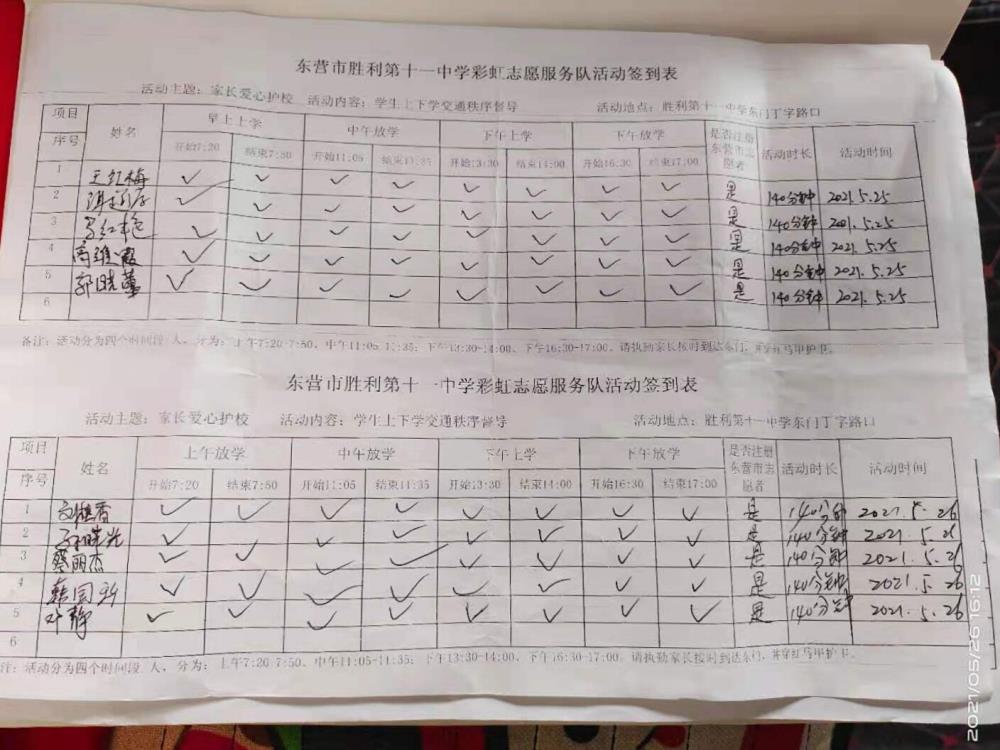 东营市胜利第十一中学彩虹志愿服务队活动签到表
活动主题：家长爱心护校 活动内容：学生上下学交通秩序督导 活动地点：胜利第十一中学东门丁字路口
项目 序号 姓名 早上上学 中午放学 下午上学 下午放学 是否注册东营市志愿者 活动时长 活动时间
开始7:20 结束7:50 开始11:05 结束11:35 开始13:30 结束14:00 开始16:30 结束17:00
1 王红梅 ✓ ✓ ✓ ✓ ✓ ✓ ✓ ✓ 是 140分钟 2021.5.25
2 ✓ ✓ ✓ ✓ ✓ ✓ ✓ ✓ 是 140分钟 2021.5.25
3 ✓ ✓ ✓ ✓ ✓ ✓ ✓ ✓ 是 140分钟 2021.5.25
4 高维霞 ✓ ✓ ✓ ✓ ✓ ✓ ✓ ✓ 是 140分钟 2021.5.25
5 郭晓蕾 ✓ ✓ ✓ ✓ ✓ ✓ ✓ ✓ 是 140分钟 2021.5.25
6
备注：活动分为四个时间段 人，分为：上午7:20-7:50、中午11:05-11:35；下午13:30-14:00、下午16:30-17:00。请执勤家长按时到达东门，并穿红马甲护卫。
东营市胜利第十一中学彩虹志愿服务队活动签到表
活动主题：家长爱心护校 活动内容：学生上下学交通秩序督导 活动地点：胜利第十一中学东门丁字路口
项目 序号 姓名 上午放学 中午放学 下午上学 下午放学 是否注册东营市志愿者 活动时长 活动时间
开始7:20 结束7:50 开始11:05 结束11:35 开始13:30 结束14:00 开始16:30 结束17:00
1 ✓ ✓ ✓ ✓ ✓ ✓ ✓ ✓ 是 140分钟 2021.5.26
2 孙晓光 ✓ ✓ ✓ ✓ ✓ ✓ ✓ ✓ 是 140分钟 2021.5.26
3 蔡丽杰 ✓ ✓ ✓ ✓ ✓ ✓ ✓ ✓ 是 140分钟 2021.5.26
4 韩国新 ✓ ✓ ✓ ✓ ✓ ✓ ✓ ✓ 是 140分钟 2021.5.26
5 叶静 ✓ ✓ ✓ ✓ ✓ ✓ ✓ ✓ 是 140分钟 2021.5.26
6
注：活动分为四个时间段 人，分为：上午7:20-7:50、中午11:05-11:35；下午13:30-14:00、下午16:30-17:00。请执勤家长按时到达东门，并穿红马甲护卫。
2021/05/26 16:12